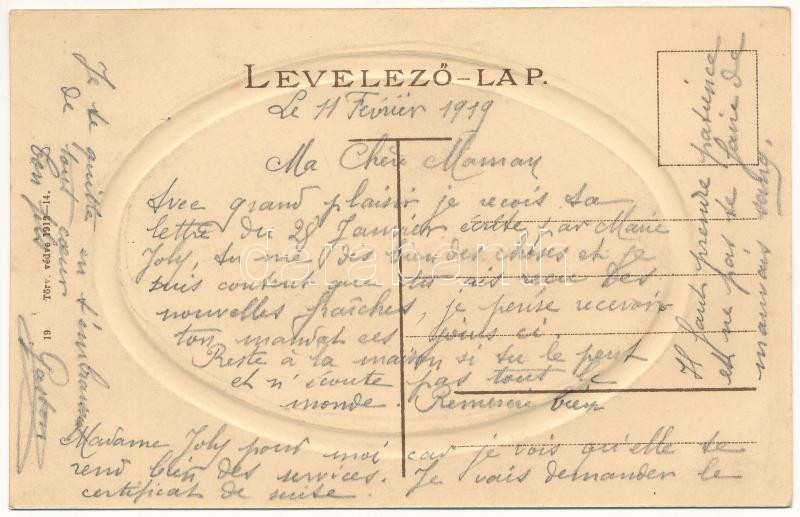 LEVELEZŐ-LAP.
Le 11 Février 1919
Ma Chère Maman
Avec grand plaisir je recois ta
lettre du 28 Janvier écrite par Marie
Joly, tu me dis bien des choses et je
suis content que tu ais recu des
nouvelles fraîches, je pense recevoir
ton mandat ces jours ci.
Reste à la maison si tu le peut
et n'écoute pas tout le
monde. Remercie bien
Madame Joly pour moi car je vois qu'elle te
rend bien des services. Je vais demander le
certificat de suite.
Il faut prendre patience
et ne pas se faire de
mauvais sang.
Je te quitte en t'embrassant
de tout cœur
Ton fils
Gaston
19 Törv. védve 1912-14.
darabanth